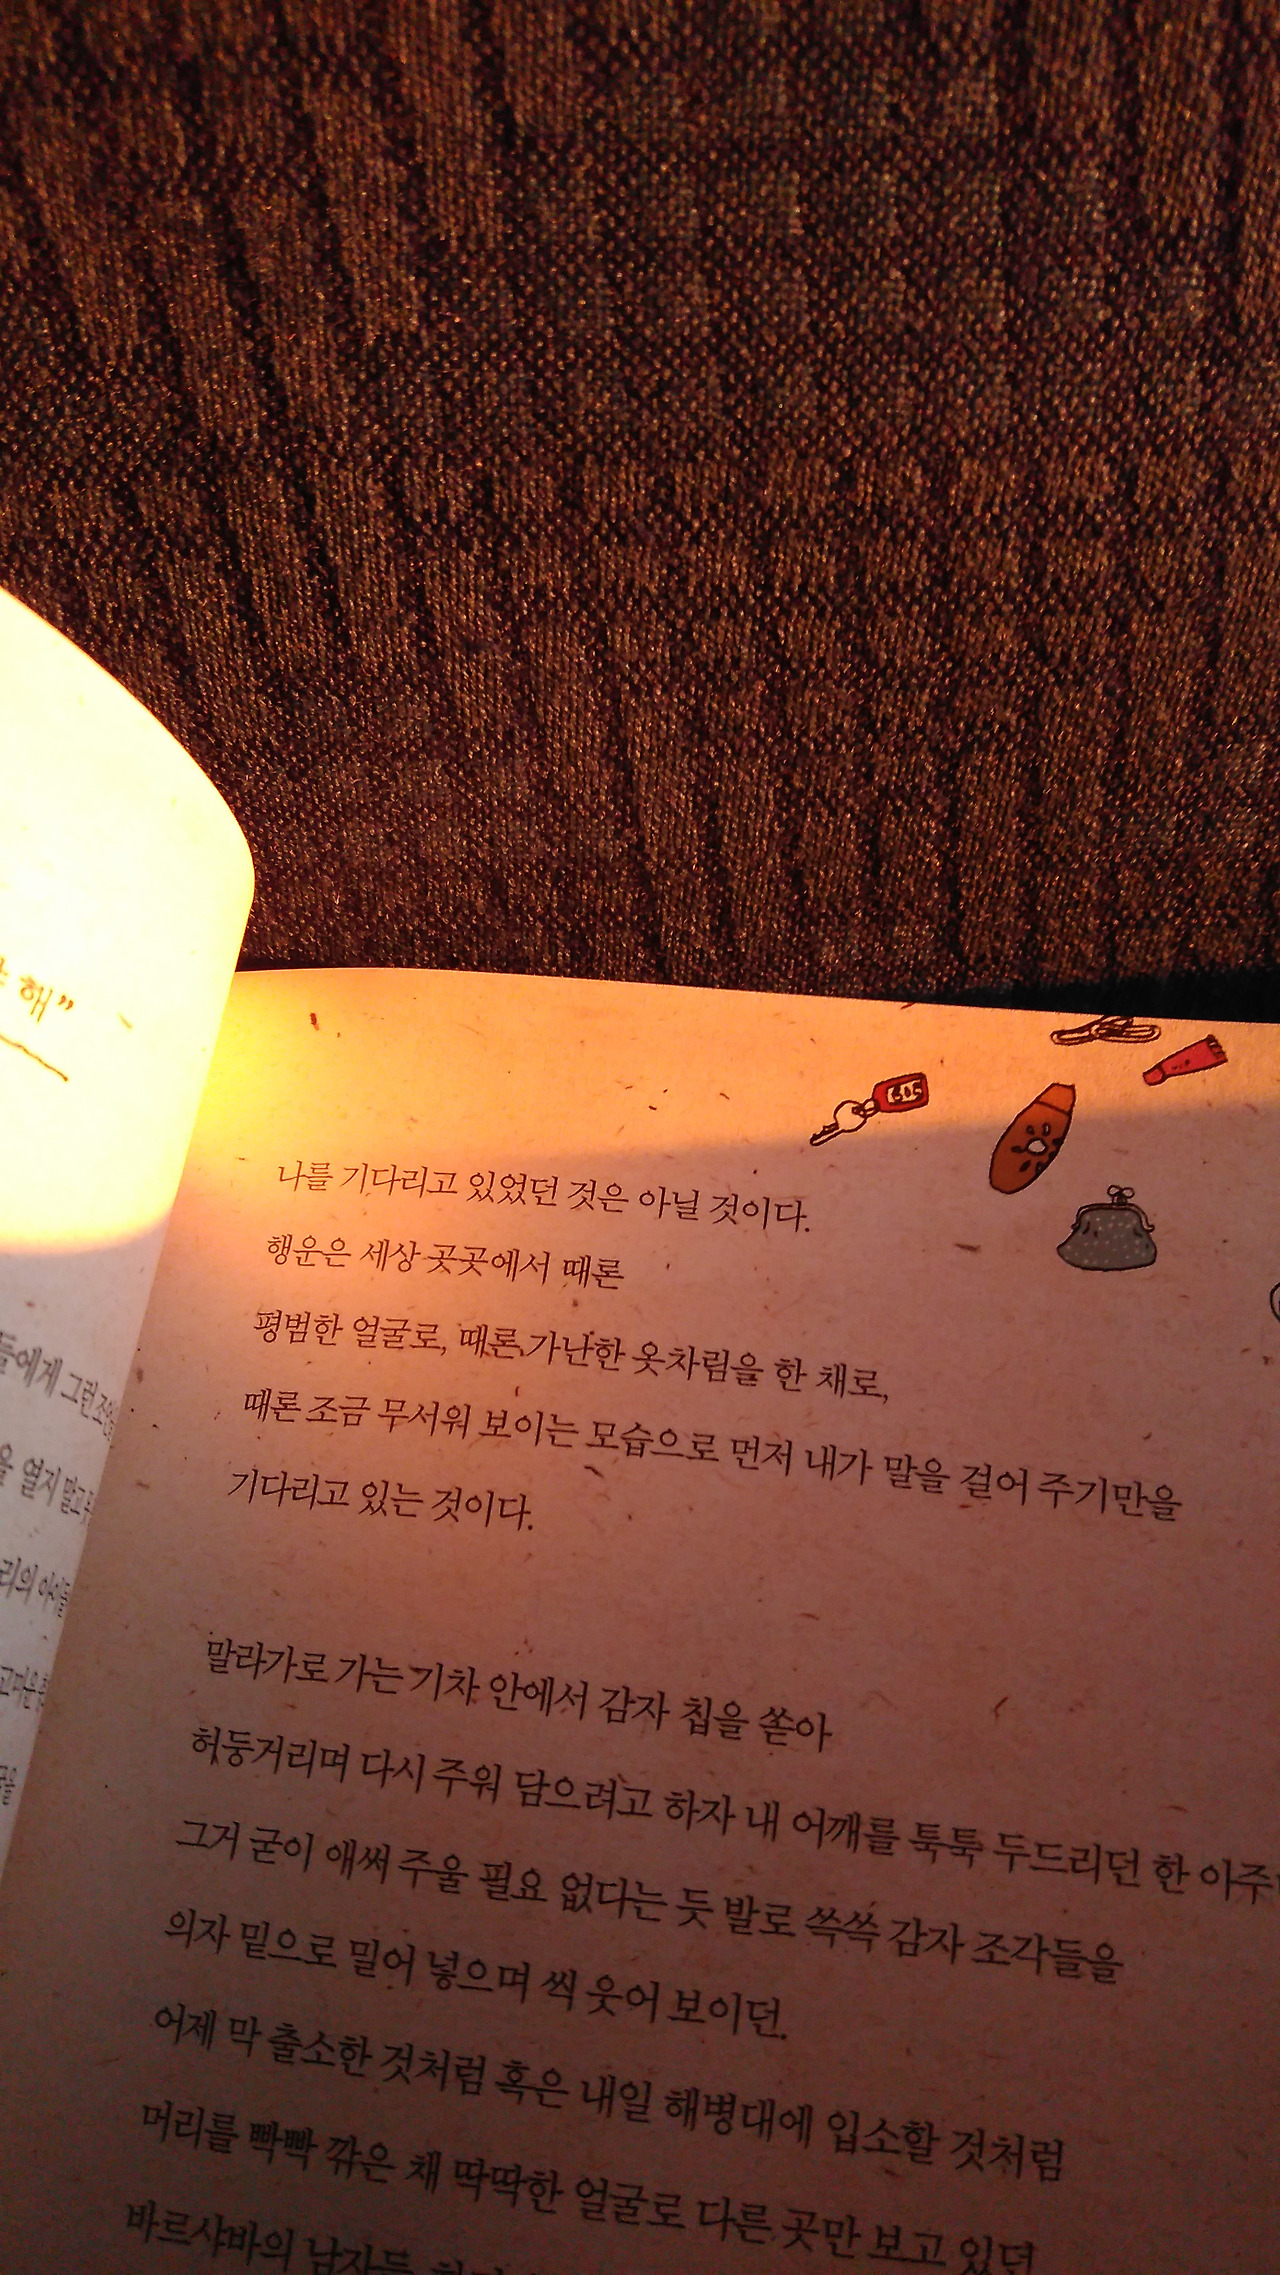 해”
들에게 그런
열지 말고
605
나를 기다리고 있었던 것은 아닐 것이다.
행운은 세상 곳곳에서 때론
평범한 얼굴로, 때론 가난한 옷차림을 한 채로,
때론 조금 무서워 보이는 모습으로 먼저 내가 말을 걸어 주기만을
기다리고 있는 것이다.
말라가로 가는 기차 안에서 감자 칩을 쏟아
허둥거리며 다시 주워 담으려고 하자 내 어깨를 툭툭 두드리던 한
그거 굳이 애써 주울 필요 없다는 듯 발로 쓱쓱 감자 조각들을
의자 밑으로 밀어 넣으며 씩 웃어 보이던.
어제 막 출소한 것처럼 혹은 내일 해병대에 입소할 것처럼
머리를 빡빡 깎은 채 딱딱한 얼굴로 다른 곳만 보고 있던
바르샤바의 남자들